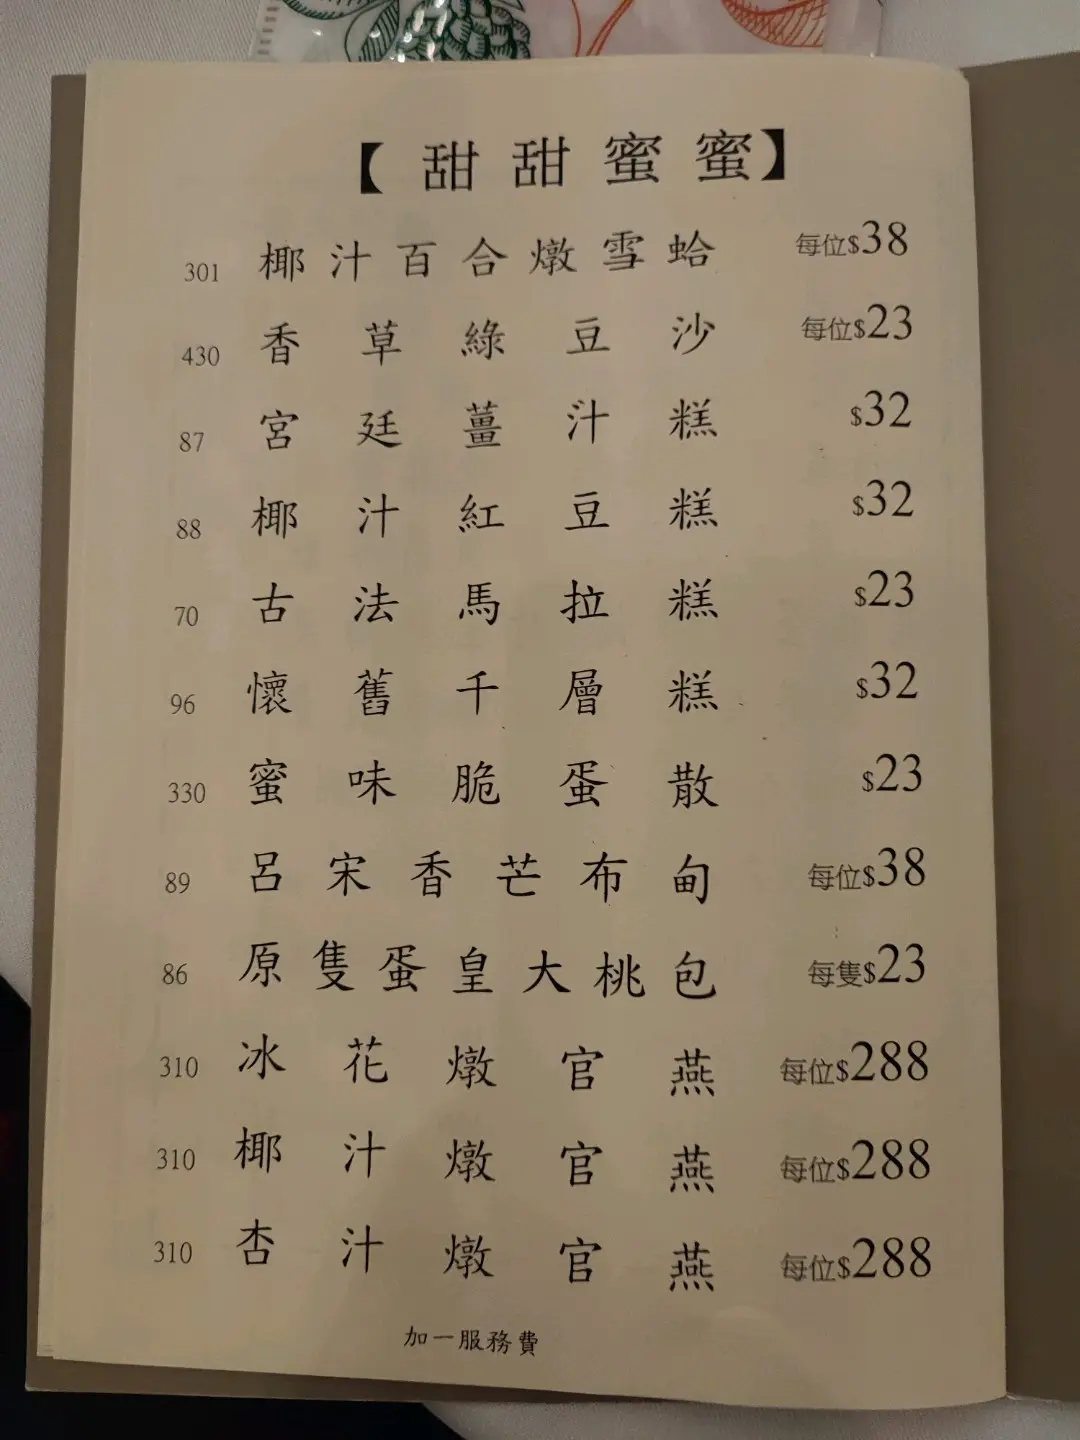 【甜甜蜜蜜】
301 椰汁百合燉雪蛤 每位$38
430 香草綠豆沙 每位$23
87 宮廷薑汁糕 $32
88 椰汁紅豆糕 $32
70 古法馬拉糕 $23
96 懷舊千層糕 $32
330 蜜味脆蛋散 $23
89 呂宋香芒布甸 每位$38
86 原隻蛋皇大桃包 每隻$23
310 冰花燉官燕 每位$288
310 椰汁燉官燕 每位$288
310 杏汁燉官燕 每位$288
加一服務費